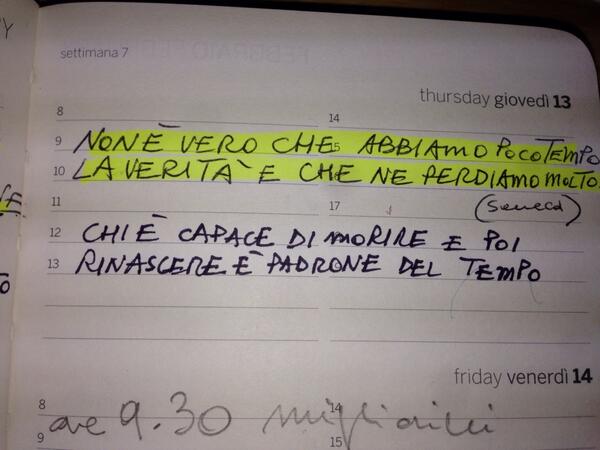 settimana 7
thursday giovedì 13
8 14
9 NON È VERO CHE 15 ABBIAMO POCO TEMPO
10 LA VERITÀ E CHE NE PERDIAMO MOLTO
11 17 (Seneca)
12 CHI È CAPACE DI MORIRE E POI
13 RINASCERE È PADRONE DEL TEMPO
friday venerdì 14
8 14
ore 9.30
9 15